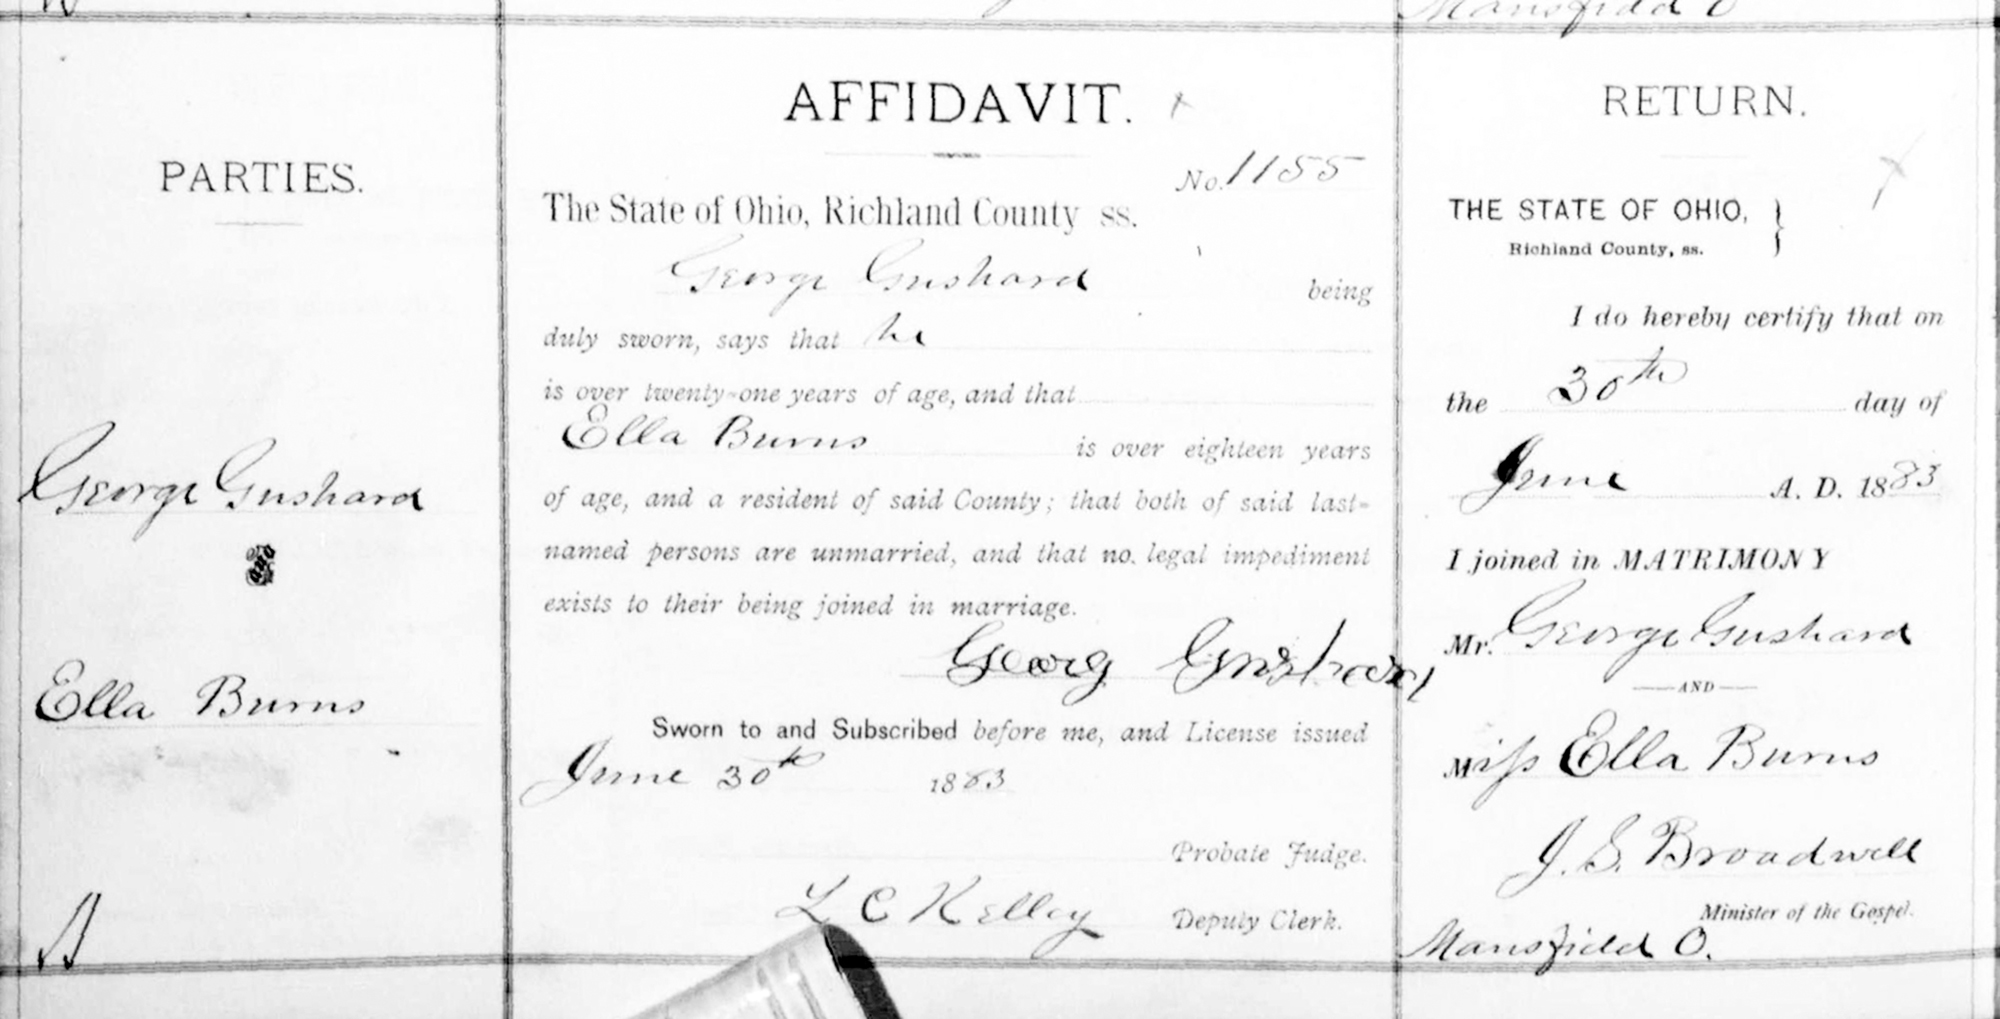 Mansfield O
PARTIES.
George Gushard
and
Ella Burns
AFFIDAVIT.
No. 1155
The State of Ohio, Richland County ss.
George Gushard being
duly sworn, says that he
is over twenty-one years of age, and that
Ella Burns is over eighteen years
of age, and a resident of said County; that both of said last-
named persons are unmarried, and that no legal impediment
exists to their being joined in marriage.
Georg Gushard
Sworn to and Subscribed before me, and License issued
June 30th 1883
Probate Judge.
L C Kelley Deputy Clerk.
RETURN.
THE STATE OF OHIO, }
Richland County, ss.
I do hereby certify that on
the 30th day of
June A. D. 1883
I joined in MATRIMONY
Mr. George Gushard
—AND—
Miss Ella Burns
J. S. Broadwell
Minister of the Gospel.
Mansfield O.